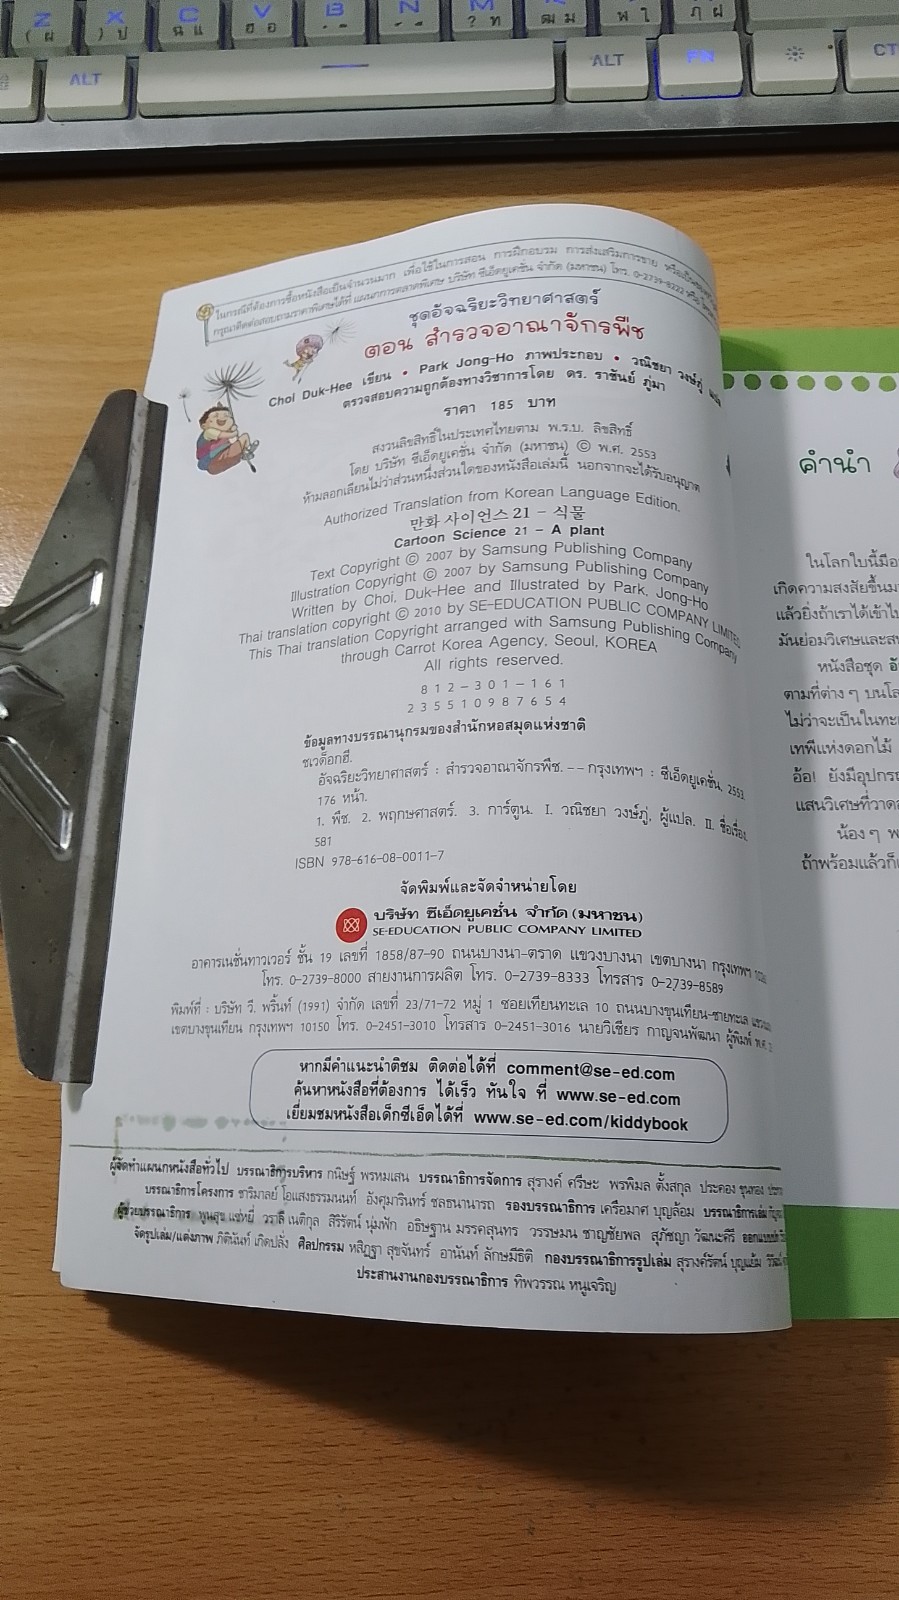 Z
X
C
V
B
N
M
ALT
ALT
FN
ในกรณีที่ต้องการซื้อหนังสือเป็นจำนวนมาก เพื่อใช้ในการสอน การฝึกอบรม การส่งเสริมการขาย
กรุณาติดต่อสอบถามราคาพิเศษได้ที่ แผนกการตลาดพิเศษ บริษัท ซีเอ็ดยูเคชั่น จำกัด (มหาชน) โทร. 0-2739-8222
ชุดอัจฉริยะวิทยาศาสตร์
ตอน สำรวจอาณาจักรพืช
Choi Duk-Hee เขียน • Park Jong-Ho ภาพประกอบ • วณิชยา วงษ์ภู่
ตรวจสอบความถูกต้องทางวิชาการโดย ดร. ราชันย์ ภู่มา
ราคา 185 บาท
สงวนลิขสิทธิ์ในประเทศไทยตาม พ.ร.บ. ลิขสิทธิ์
โดย บริษัท ซีเอ็ดยูเคชั่น จำกัด (มหาชน) © พ.ศ. 2553
ห้ามลอกเลียนไม่ว่าส่วนหนึ่งส่วนใดของหนังสือเล่มนี้ นอกจากจะได้รับอนุญาต
Authorized Translation from Korean Language Edition.
만화 사이언스 21 - 식물
Cartoon Science 21 – A plant
Text Copyright © 2007 by Samsung Publishing Company
Illustration Copyright © 2007 by Samsung Publishing Company
Written by Choi, Duk-Hee and Illustrated by Park, Jong-Ho
Thai translation copyright © 2010 by SE-EDUCATION PUBLIC COMPANY LIMITED
This Thai translation Copyright arranged with Samsung Publishing Company
through Carrot Korea Agency, Seoul, KOREA
All rights reserved.
8 1 2 – 3 0 1 – 1 6 1
2 3 5 5 1 0 9 8 7 6 5 4
ข้อมูลทางบรรณานุกรมของสำนักหอสมุดแห่งชาติ
ชเวด็อกฮี.
อัจฉริยะวิทยาศาสตร์ : สำรวจอาณาจักรพืช. -- กรุงเทพฯ : ซีเอ็ดยูเคชั่น, 2553.
176 หน้า.
1. พืช. 2. พฤกษศาสตร์. 3. การ์ตูน. I. วณิชยา วงษ์ภู่, ผู้แปล. II. ชื่อเรื่อง.
581
ISBN 978-616-08-0011-7
จัดพิมพ์และจัดจำหน่ายโดย
บริษัท ซีเอ็ดยูเคชั่น จำกัด (มหาชน)
SE-EDUCATION PUBLIC COMPANY LIMITED
อาคารเนชั่นทาวเวอร์ ชั้น 19 เลขที่ 1858/87-90 ถนนบางนา-ตราด แขวงบางนา เขตบางนา กรุงเทพฯ
โทร. 0-2739-8000 สายงานการผลิต โทร. 0-2739-8333 โทรสาร 0-2739-8589
พิมพ์ที่ : บริษัท วี. พริ้นท์ (1991) จำกัด เลขที่ 23/71-72 หมู่ 1 ซอยเทียนทะเล 10 ถนนบางขุนเทียน-ชายทะเล
เขตบางขุนเทียน กรุงเทพฯ 10150 โทร. 0-2451-3010 โทรสาร 0-2451-3016 นายวิเชียร กาญจนพัฒนา ผู้พิมพ์ พ.ศ.
หากมีคำแนะนำติชม ติดต่อได้ที่ comment@se-ed.com
ค้นหาหนังสือที่ต้องการ ได้เร็ว ทันใจ ที่ www.se-ed.com
เยี่ยมชมหนังสือเด็กซีเอ็ดได้ที่ www.se-ed.com/kiddybook
ผู้จัดทำแผนกหนังสือทั่วไป บรรณาธิการบริหาร กนิษฐ์ พรหมเสน บรรณาธิการจัดการ สุรางค์ ศรีษะ พรพิมล ตั้งสกุล ประคอง
บรรณาธิการโครงการ ชาริมาลย์ โอแสงธรรมนนท์ อังศุมารินทร์ ชลธนานารถ รองบรรณาธิการ เครือมาศ บุญล้อม บรรณาธิการเล่ม
ผู้ช่วยบรรณาธิการ พูนสุข แซ่หยี่ วราลี เนติกุล สิริรัตน์ นุ่มพัก อธิษฐาน มรรคสุนทร วรรษมน ชาญชัยพล สุภัชญา วัฒนะคีรี
จัดรูปเล่ม/แต่งภาพ ภิตินันท์ เกิดปลั่ง ศิลปกรรม หสิฎฐา สุขจันทร์ อานันท์ ลักษมีธิติ กองบรรณาธิการรูปเล่ม สุรางค์รัตน์ บุญแย้ม
ประสานงานกองบรรณาธิการ ทิพวรรณ หนูเจริญ
คำนำ
ในโลกใบนี้มีอ
เกิดความสงสัยขึ้นม
แล้วยิ่งถ้าเราได้เข้าไ
มันย่อมวิเศษและส
หนังสือชุด อั
ตามที่ต่าง ๆ บนโล
ไม่ว่าจะเป็นในทะเ
เทพีแห่งดอกไม้
อ้อ! ยังมีอุปกร
แสนวิเศษที่วาด
น้อง ๆ พ
ถ้าพร้อมแล้วก็